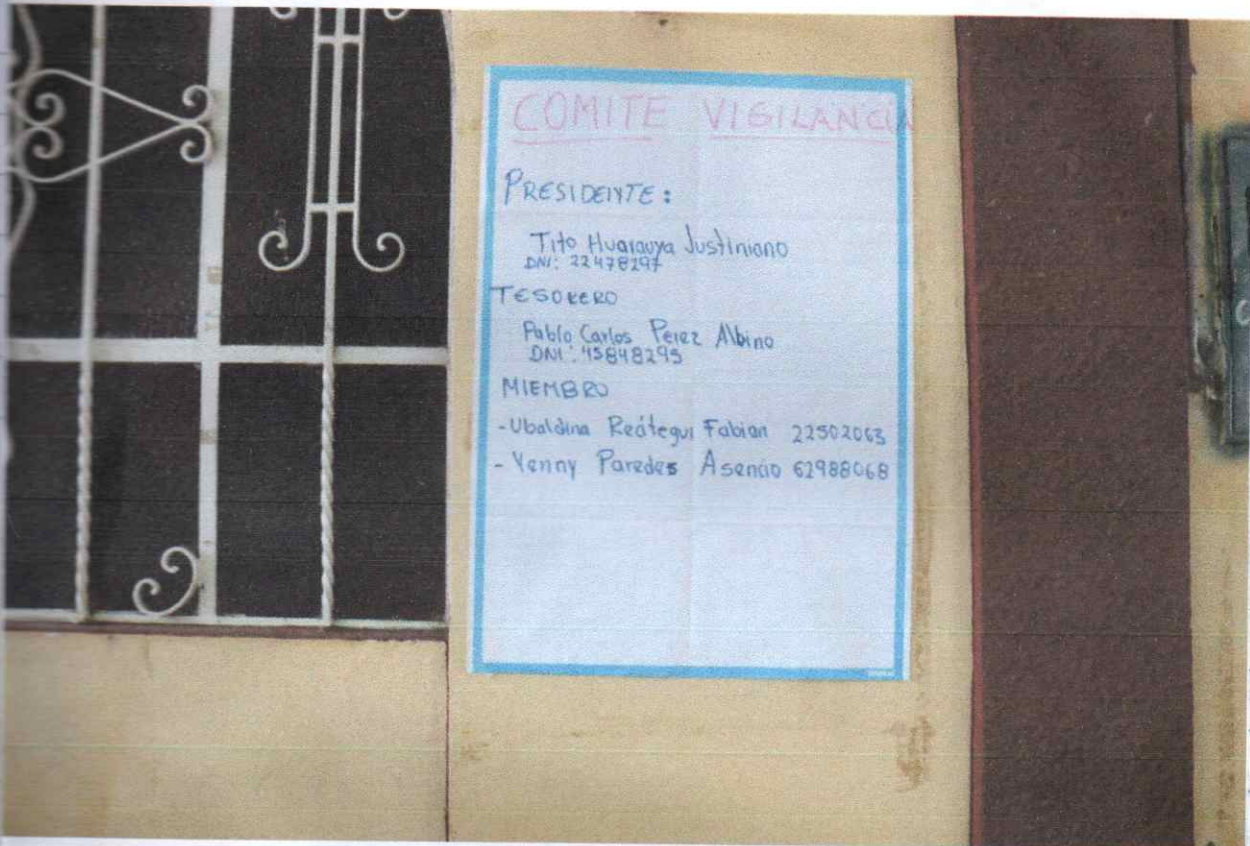 COMITE VIGILANCIA
PRESIDENTE:
Tito Huarauya Justiniano
DNI: 22478297
TESORERO
Pablo Carlos Perez Albino
DNI: 45848295
MIEMBRO
-Ubaldina Reátegui Fabian 22502063
- Yenny Paredes Asencio 62988068